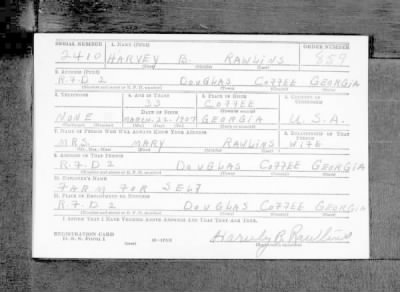 SERIAL NUMBER 1. NAME (Print) ORDER NUMBER
2410 HARVEY B. RAWLINS 859
(First) (Middle) (Last)
2. ADDRESS (Print)
R.F.D 2 DOUGLAS COFFEE GEORGIA
(Number and street or R. F. D. number) (Town) (County) (State)
3. TELEPHONE 4. AGE IN YEARS 5. PLACE OF BIRTH 6. COUNTRY OF CITIZENSHIP
33 COFFEE
DATE OF BIRTH (Town or county)
NONE MARCH 1907 GEORGIA U.S.A.
(Exchange) (Number) (Mo.) (Day) (Yr.) (State or country)
7. NAME OF PERSON WHO WILL ALWAYS KNOW YOUR ADDRESS 8. RELATIONSHIP OF THAT PERSON
MRS. MARY RAWLINS WIFE
(Mr., Mrs., Miss) (First) (Middle) (Last)
9. ADDRESS OF THAT PERSON
R.F.D 2 DOUGLAS COFFEE GEORGIA
(Number and street or R. F. D. number) (Town) (County) (State)
10. EMPLOYER'S NAME
FARM FOR SELF
11. PLACE OF EMPLOYMENT OR BUSINESS
R.F.D 2 DOUGLAS COFFEE GEORGIA
(Number and street or R. F. D. number) (Town) (County) (State)
I AFFIRM THAT I HAVE VERIFIED ABOVE ANSWERS AND THAT THEY ARE TRUE.
REGISTRATION CARD
D. S. S. FORM 1 (over)